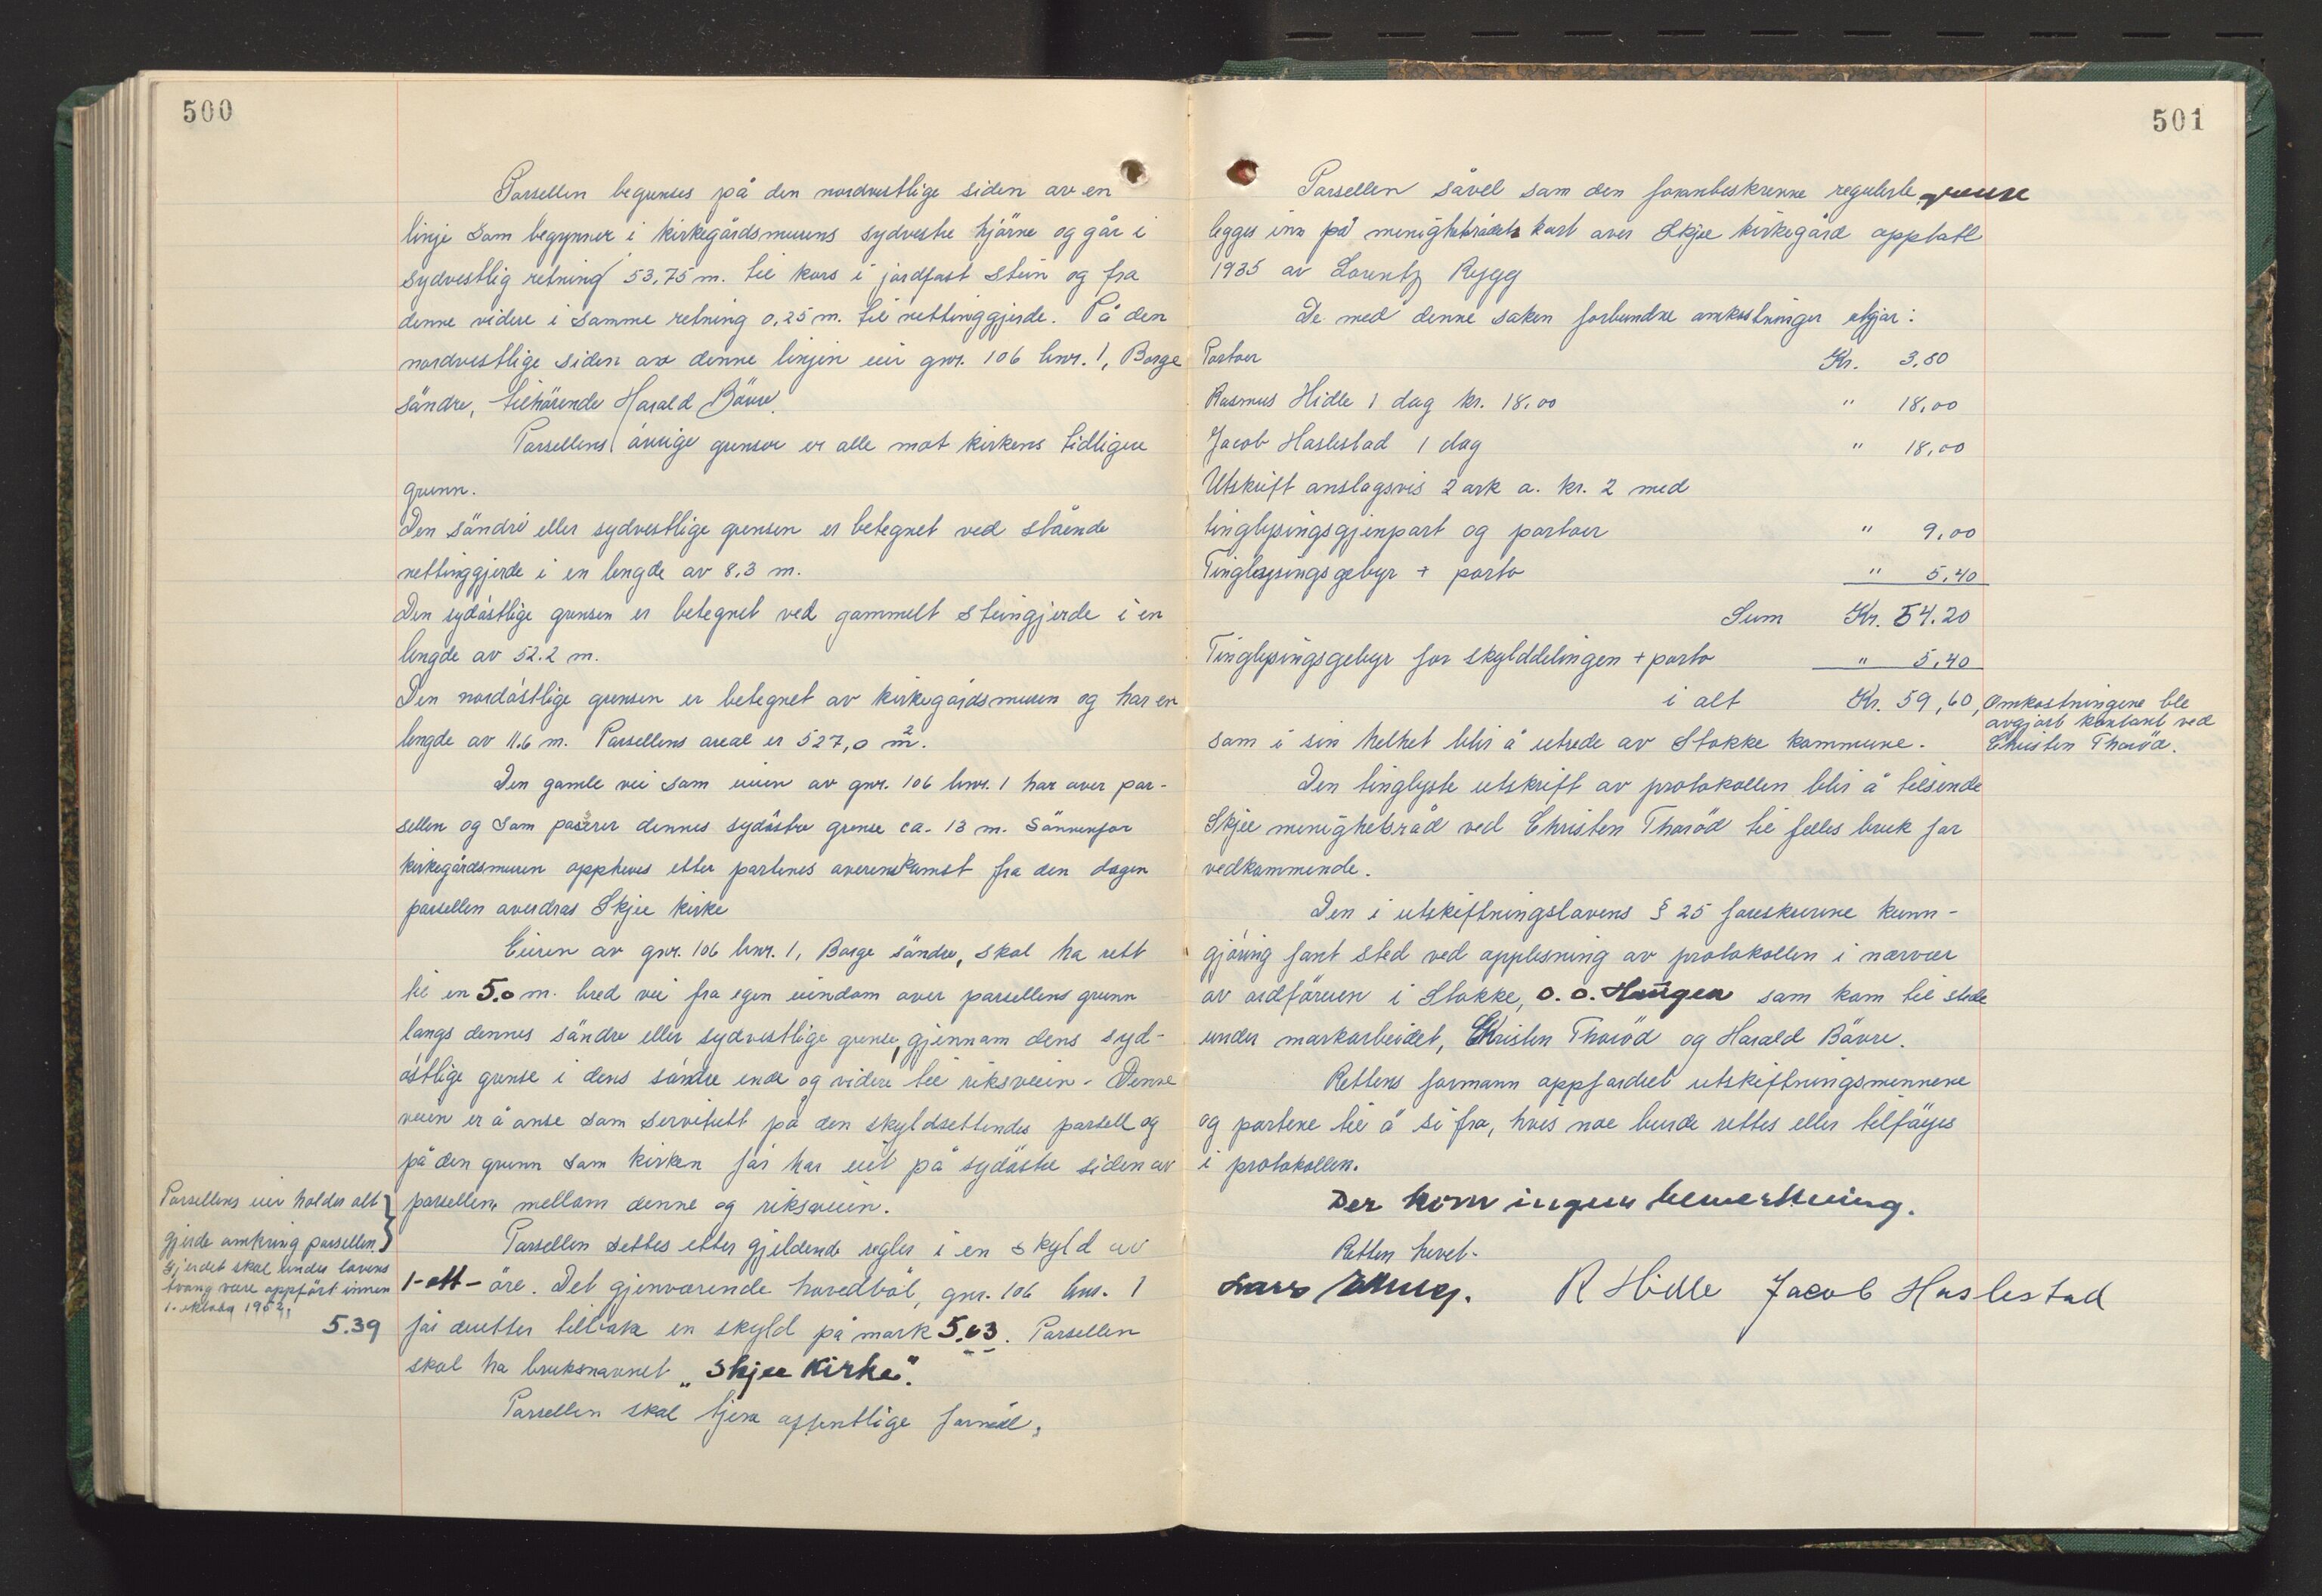 500
Parsellen begrenses på den nordvestlige siden av en
linje som begynner i kirkegårdsmurens sydvestre hjörne og går i
sydvestlig retning 53,75 m. til kors i jordfast stein og fra
denne videre i samme retning 0,25 m. til nettinggjerde. På den
nordvestlige siden av denne linjen eier gnr. 106 bnr. 1, Borge
söndre, tilhörende Harald Bövre.
Parsellens övrige grenser er alle mot kirkens tidligere
grunn.
Den söndre eller sydvestlige grensen er betegnet ved stående
nettinggjerde i en lengde av 8,3 m.
Den sydöstlige grensen er betegnet ved gammelt steingjerde i en
lengde av 52.2 m.
Den nordöstlige grensen er betegnet av kirkegårdsmuren og har en
lengde av 11.6 m. Parsellens areal er 527,0 m².
Den gamle vei som eieren av gnr. 106 bnr. 1 har over par-
sellen og som passerer dennes sydöstre grense ca. 13 m. sönnenfor
kirkegårdsmuren oppheves etter partenes overenskomst fra den dagen
parsellen overdras Skjee kirke
Eieren av gnr. 106 bnr. 1, Borge söndre, skal ha rett
til en 5.0 m. bred vei fra egen eiendom over parsellens grunn
langs dennes söndre eller sydvestlige grense, gjennom dens syd-
östlige grense i dens söndre ende og videre til riksveien. Denne
veien er å anse som servitutt på den skyldsettendes parsell og
på den grunn som kirken för har eiet på sydöstre siden av
Parsellens eier holder alt
parsellen, mellom denne og riksveien.
gjerde omkring parsellen.
Gjerdet skal under lovens
tvang være oppfört innen
1. oktober 1952.
Parsellen settes etter gjeldende regler i en skyld av
1-ett- öre. Det gjenværende hovedböl, gnr. 106 bnr. 1
5.39
får deretter tilbake en skyld på mark 5.03. Parsellen
skal ha bruksnavnet „Skjee Kirke“.
Parsellen skal tjene offentlige formål.
501
Parsellen såvel som den foranbeskrevne regulerte grense
legges inn på menighetsrådets kart over Skjee kirkegård opptatt
1935 av Lorentz Rygg
De med denne saken forbundne omkostninger utgjör:
Portoer Kr. 3.80
Rasmus Hidle 1 dag kr. 18,00 " 18,00
Jacob Haslestad 1 dag " 18,00
Utskrift anslagsvis 2 ark a. kr. 2 med
tinglysingsgjenpart og portoer " 9,00
Tinglysingsgebyr + porto " 5,40
Sum Kr. 54.20
Tinglysingsgebyr for skylddelingen + porto " 5,40
i alt Kr. 59,60,
Omkostningene ble
avgjort kontant ved
Christen Thoröd.
som i sin helhet blir å utrede av Stokke kommune.
Den tinglyste utskrift av protokollen blir å tilsende
Skjee menighetsråd ved Christen Thoröd til felles bruk for
vedkommende.
Den i utskiftningslovens § 25 foreskrevne kunn-
gjöring fant sted ved opplesning av protokollen i nærvær
av ordföreren i Stokke, O. O. Haugen som kom til stede
under markarbeidet, Christen Thoröd og Harald Bövre.
Rettens formann oppfordret utskiftningsmennene
og partene til å si fra, hvis noe burde rettes eller tilföyes
i protokollen.
Der kom ingen bemerkning.
Retten hevet.
Lars R Hidle Jacob Haslestad